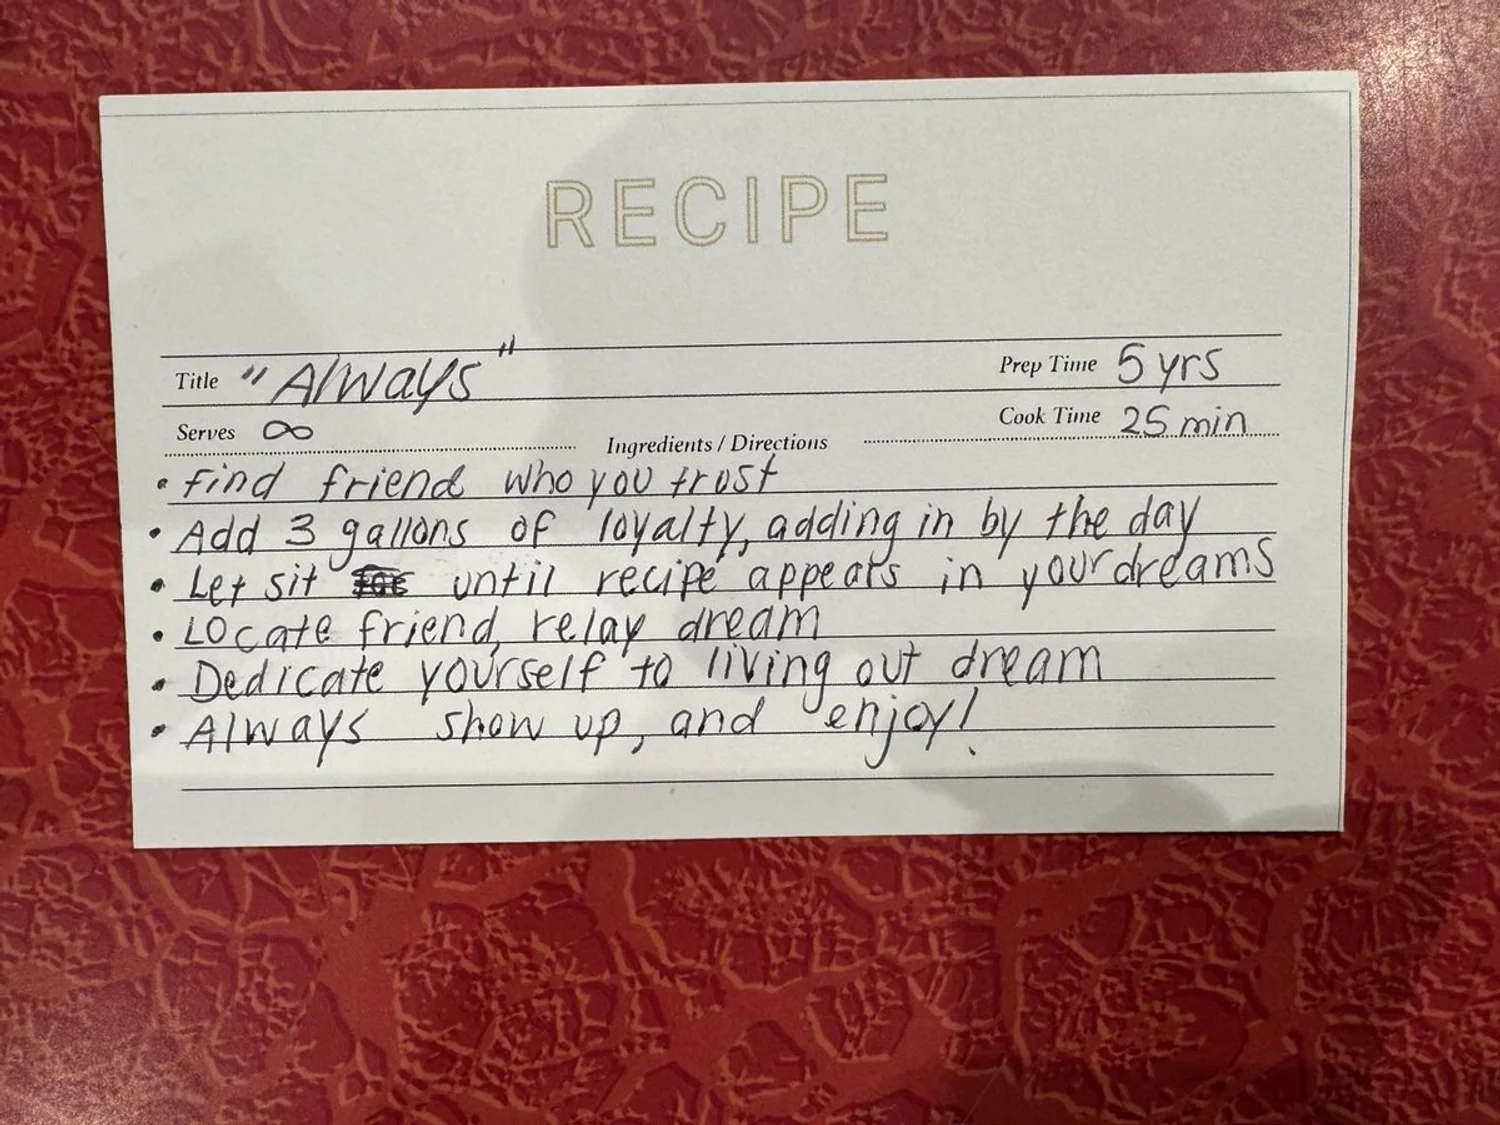 RECIPE
Title "Always" Prep Time 5 yrs
Serves ∞ Cook Time 25 min
Ingredients / Directions
• Find friend who you trust
• Add 3 gallons of loyalty, adding in by the day
• Let sit until recipe appears in your dreams
• Locate friend, relay dream
• Dedicate yourself to living out dream
• Always show up, and enjoy!